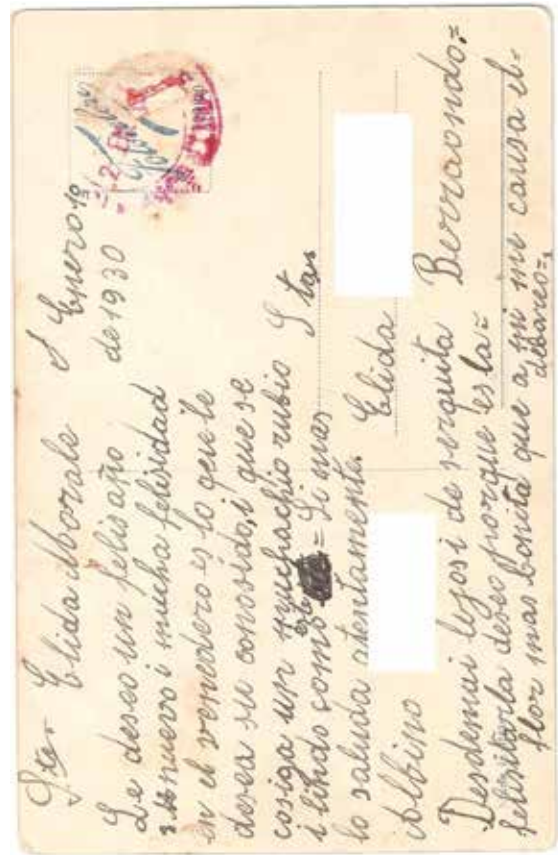 Ster Elida Morale
S Enero 1º
de 1930
Le deseo un felis año
nuevo i mucha felisidad
en el venedero es lo que le
desea su conosido, i que se
cosiga un muchachio rubio
i lindo como = Si mas
lo saluda atentamente.
Albino
Stas
Elida Berraondo =
Desdemai lejos i de serquita
felisitarla deseo porque es la =
flor mas bonita que a mi me causa el
debareo =